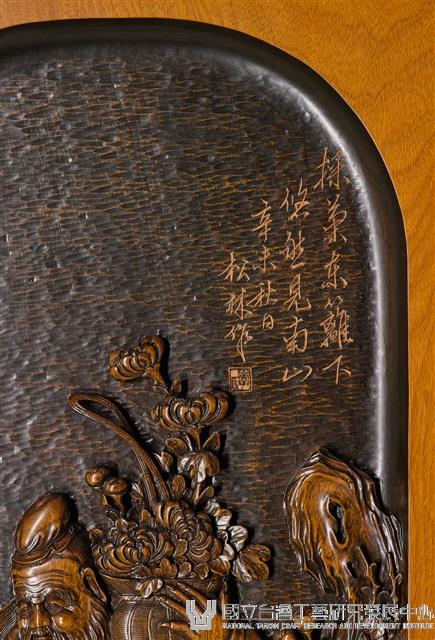 採菊東籬下
悠然見南山
辛未秋日
松林作
國立台灣工藝研究發展中心
NATIONAL TAIWAN CRAFT RESEARCH AND DEVELOPMENT INSTITUTE